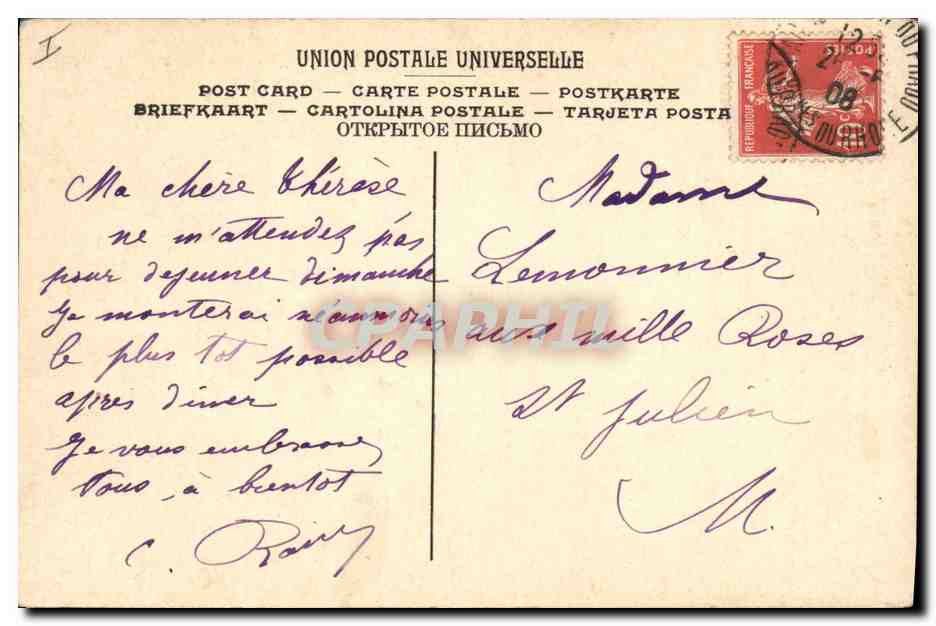 I
UNION POSTALE UNIVERSELLE
POST CARD — CARTE POSTALE — POSTKARTE
BRIEFKAART — CARTOLINA POSTALE — TARJETA POSTA
ОТКРЫТОЕ ПИСЬМО
REPUBLIQUE FRANÇAISE
POSTES
10 C
08
DU RHONE
Ma chère Thérèse
ne m'attendez pas
pour dejeuner dimanche
Je monterai néanmoins
le plus tot possible
après diner
Je vous embrasse
tous, à bientot
C.
Madame
Lemonnier
aux mille Roses
St Julien
M.
CPAPHIL